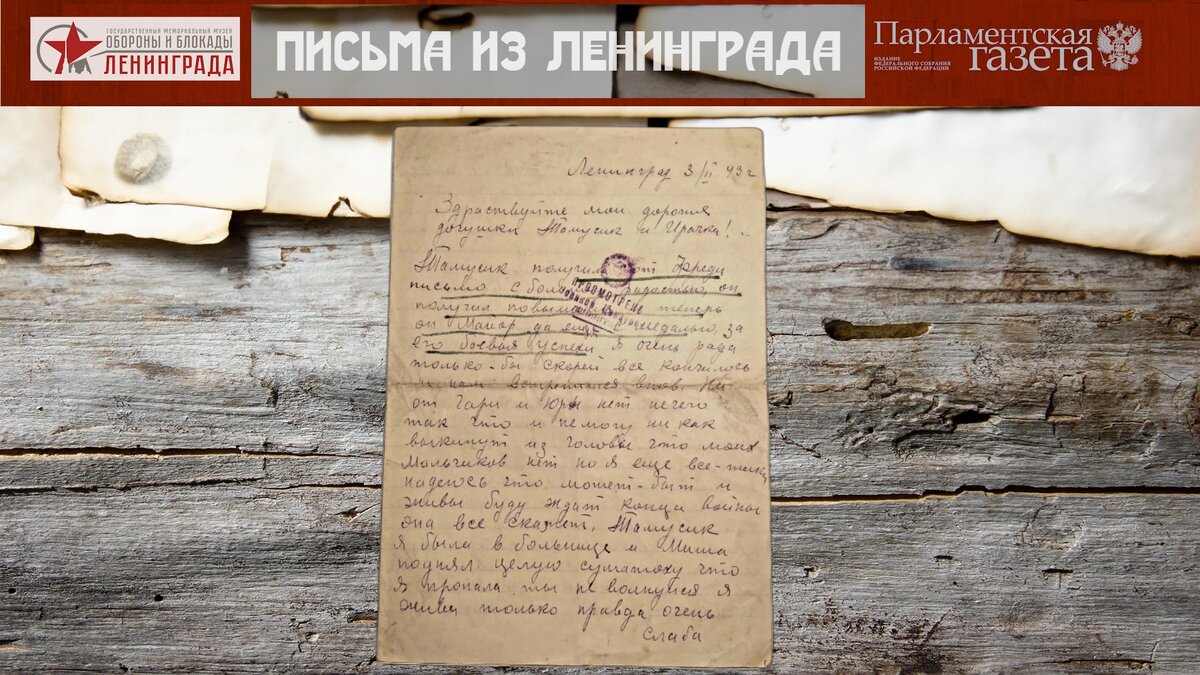 ГОСУДАРСТВЕННЫЙ МЕМОРИАЛЬНЫЙ МУЗЕЙ
ОБОРОНЫ И БЛОКАДЫ
ЛЕНИНГРАДА
ПИСЬМА ИЗ ЛЕНИНГРАДА
Парламентская
газета
ИЗДАНИЕ
ФЕДЕРАЛЬНОГО СОБРАНИЯ
РОССИЙСКОЙ ФЕДЕРАЦИИ
Ленинград 3/II 43г
Здраствуйте мои дорогия
дочушки Тамусик и Ирачка!
Тамусик получила от Фреди
письмо с радостью, он
получил теперь
он Маиор да еще с медалью за
его боевыя успехи я очень рада
только-бы скорей все кончилось
и нам встретится вновь. Ни
от Гари и Юры нет нечего
так что и немогу ни как
выкинут из головы что моих
Мальчиков нет но я еще все-таки
надеюсь что может-быт и
живы буду ждат конца войны
она все скажет. Тамусик
я была в больнице и Миша
поднял целую суматоху что
я пропала ты не волнуйся я
жива только правда очень
слаба
ПРОСМОТРЕНО